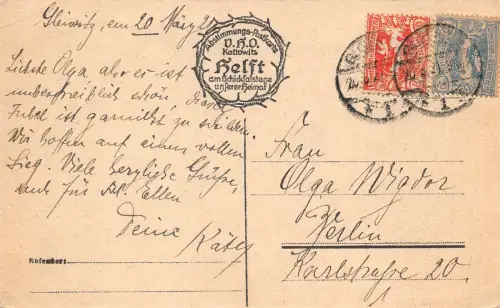 Gleiwitz, am 20 März 21
Liebste Olga, aber es ist
unbegreiflich schön, dieser
Jubel ist garnicht zu schildern.
Wir hoffen auf einen vollen
Sieg. Viele herzliche Grüße,
auch für Frl. Ellen
Deine Käte
Abstimmungs-Postkarte
V.H.O.
Kattowitz
Helft
am Schicksalstage
unserer Heimat
Frau
Olga Wigdor
Berlin
Karlstraße 20.
Absender: